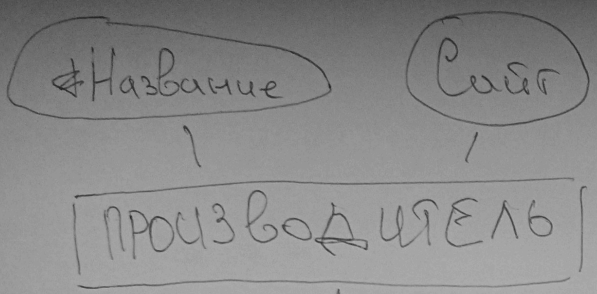 #Название
Сайт
ПРОИЗВОДИТЕЛЬ